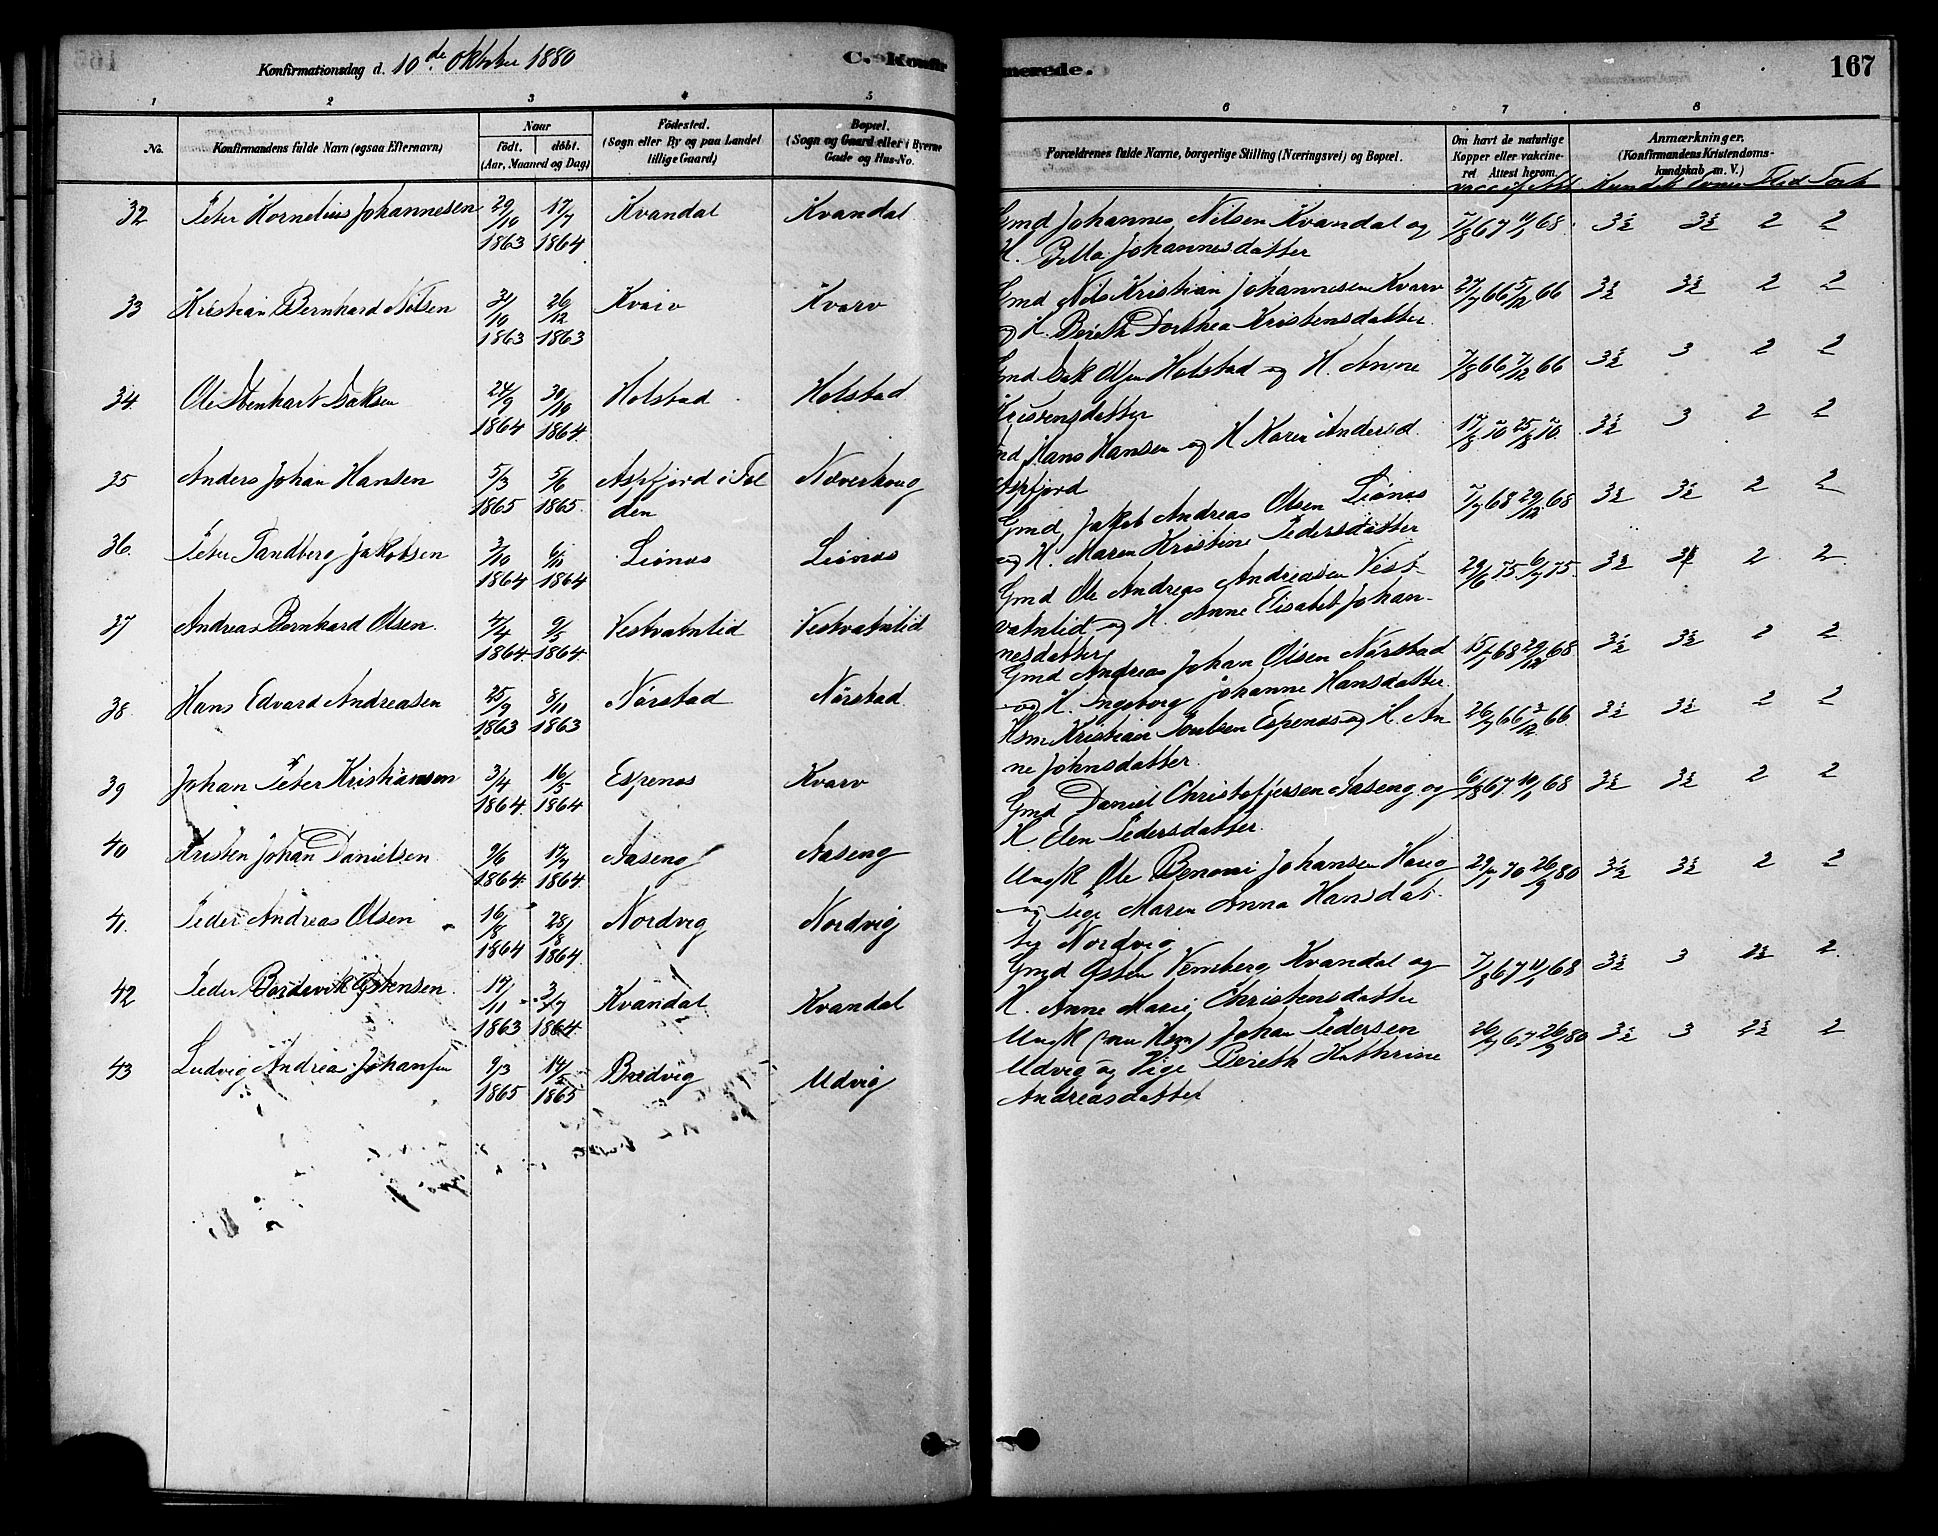 Konfirmationsdag d. 10de Oktober 1880
C. Konfir
merede.
167
1 2 3 4 5 6 7 8
No.
Konfirmandens fulde Navn (ogsaa Efternavn)
Naar
født. døbt.
(Aar, Maaned og Dag)
Fødested.
(Sogn eller By og paa Landet
tillige Gaard)
Bopæl.
(Sogn og Gaard eller i Byerne
Gade og Hus-No.
Forældrenes fulde Navne, borgerlige Stilling (Næringsvei) og Bopæl.
Om havt de naturlige
Kopper eller vakcine-
ret Attest herom.
Anmærkninger,
(Konfirmandens Kristendoms-
kundskab m. V.)
32 Peter Kornelius Johannesen 29/10 1863 17/7 1864 Kvandal Kvandal
Gmd Johannes Nilsen Kvandal og 7/8 67 11/1 68 3½ 3½ 2 2
H. Johannesdatter
33 Kristian Bernhard Nilsen 31/10 1863 26/12 1863 Kvarv Kvarv
Gmd Nils Kristian Johannesen Kvarv 27/7 66 5/12 66 3½ 3½ 2 2
og H. Bereth Dorthea Kristensdatter
34. Ole Isaksen 24/9 1864 30/10 1864 Holstad Holstad
Gmd Isak Olsen Holstad og H. Anne 7/8 66 7/12 66 3½ 3 2 2
Kristensdatter
35 Anders Johan Hansen 5/3 1865 5/6 1865 Aspfjord i Fol Næverhoug
den
Hans Hansen og H Karen Andersd. 17/8 70 25/8 70. 3½ 3 2 2
Aspfjord
36. Peter Tandberg Jakobsen 3/10 1864 6/11 1864 Liønes Liønes
Gmd, Jakob Andreas Olsen Liønes 7/7 68 29/12 68 3½ 3½ 2 2
og H. Maren Kristine Pedersdatter
37 Andreas Bernhard Olsen. 4/4 1864 9/5 1864 Vestvatnlid Vestvatnlid
Gmd Ole Andreas Andreasen Vest- 29/6 75 6/7 75. 3½ 2 2
vatnlid og H. Anne Elisabet Johan-
nesdatter
38 Hans Edvard Andreasen 25/9 1863 8/11 1863 Nørstad Nørstad
Gmd Andreas Johan Olsen Nørstad 15/1 68 29/12 68 3½ 3½ 2 2
og H. Ingeborg Johanne Hansdatter
39 Johan Peter Kristiansen 3/4 1864 16/5 1864 Espenes Kvarv
Hsm Kristian Poulsen Espenes og H. An 26/7 66 3/12 66 3½ 3½ 2 2
ne Johnsdatter.
40 Kristen Johan Danielsen 9/6 1864 17/7 1864 Aaseng Aaseng
Gmd Daniel Christofersen Aaseng og 6/8 67 10/1 68 3½ 3½ 2 2
H. Elen Pedersdatter.
41. Peder Andreas Olsen 16/8 1864 28/8 1864. Nordvig Nordvig
Ungk Ole Benoni Johansen Haug 29/11 70 26/9 80 3½ 3½ 2 2
og Pige Maren Anna Hansdat-
ter Nordvig
42 Peder Østensen. 17/11 1863 3/7 1864 Kvandal Kvandal
Gmd Østen Kvandal og 7/8 67 11/1 68 3½ 3 2½ 2
H. Anne Marie Christensdatter
43 Ludvig Andrea Johansen 9/3 1865 14/5 1865 Bredvig Udvig
Ungk (nu Hsm) Johan Pedersen 26/7 67 26/9 80 3½ 3 2½ 2
Udvig og Pige Bereth Kathrine
Andreasdatter